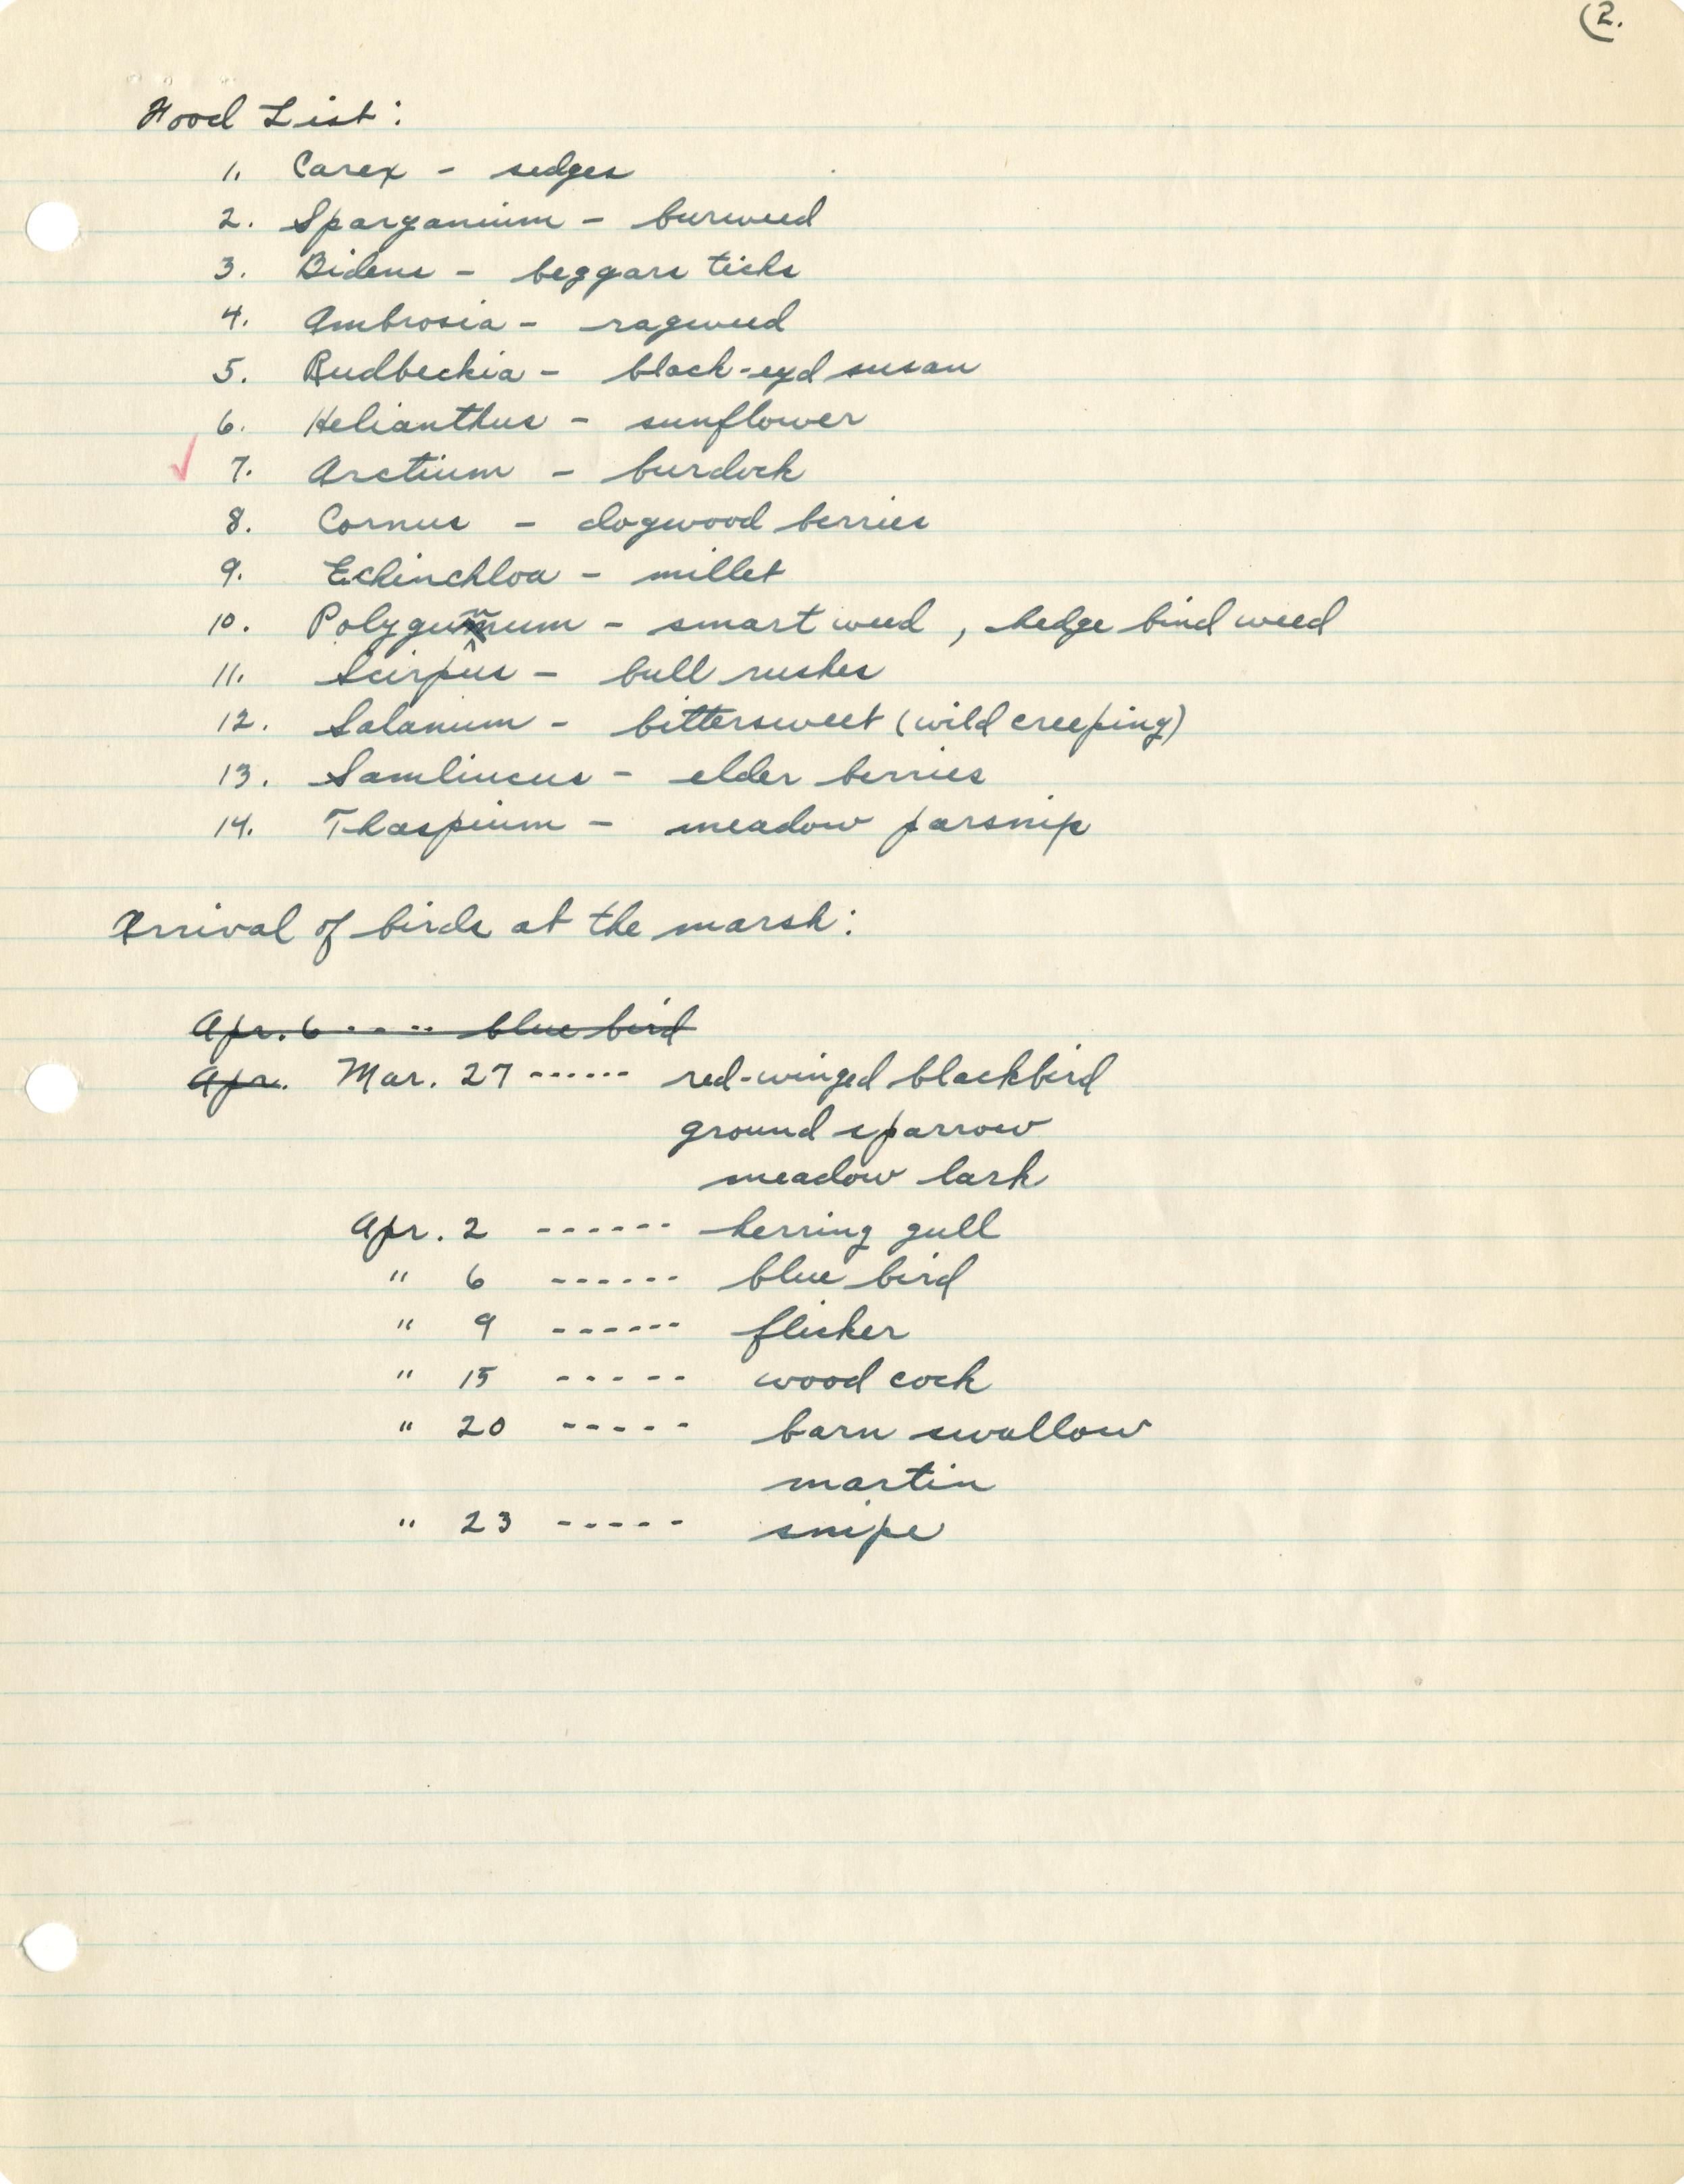 (2.
Food List:
1. Carex - sedges
2. Sparganium - burweed
3. Bidens - beggars ticks
4. Ambrosia - ragweed
5. Rudbeckia - black-eyd susan
6. Helianthus - sunflower
✓ 7. Arctium - burdock
8. Cornus - dogwood berries
9. Echinchloa - millet
10. Polygunum - smart weed, hedge bind weed
11. Scirpus - bull rushes
12. Solanum - bittersweet (wild creeping)
13. Samlincus - elder berries
14. Thaspium - meadow parsnip
Arrival of birds at the marsh:
Apr. 6 ----- blue bird
Apr. Mar. 27 ------ red-winged blackbird
ground sparrow
meadow lark
Apr. 2 ------ herring gull
" 6 ------ blue bird
" 9 ------ flicker
" 15 ----- wood cock
" 20 ----- barn swallow
martin
" 23 ----- snipe